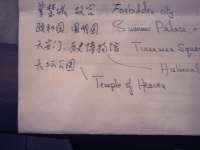 紫禁城 故宫 Forbidden city
颐和园 圆明园 Summer Palace
天安门、历史博物馆 Tiananmen Square
天坛公园 Historical
Temple of Heaven